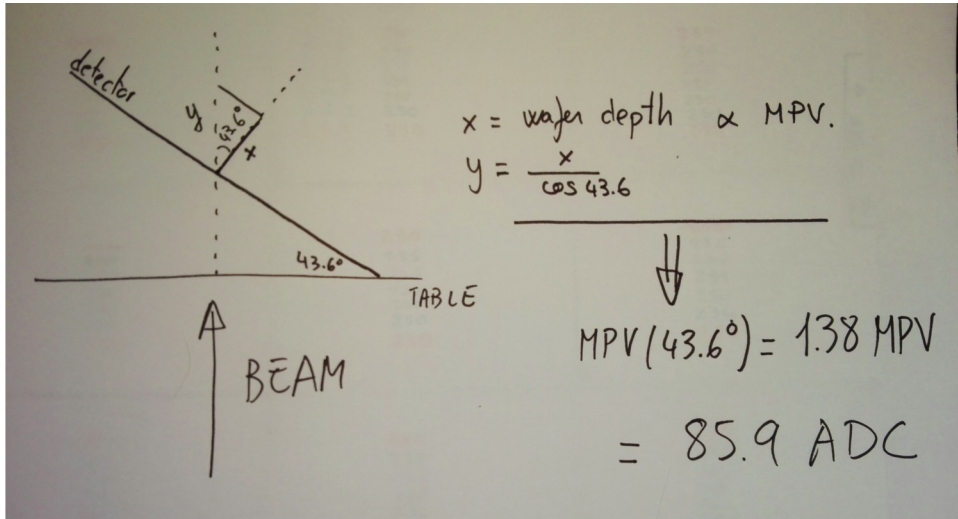 detector
y
43.6°
x
43.6°
TABLE
BEAM
x = wafer depth ∝ MPV.
y = x / cos 43.6
⇓
MPV(43.6°) = 1.38 MPV
= 85.9 ADC